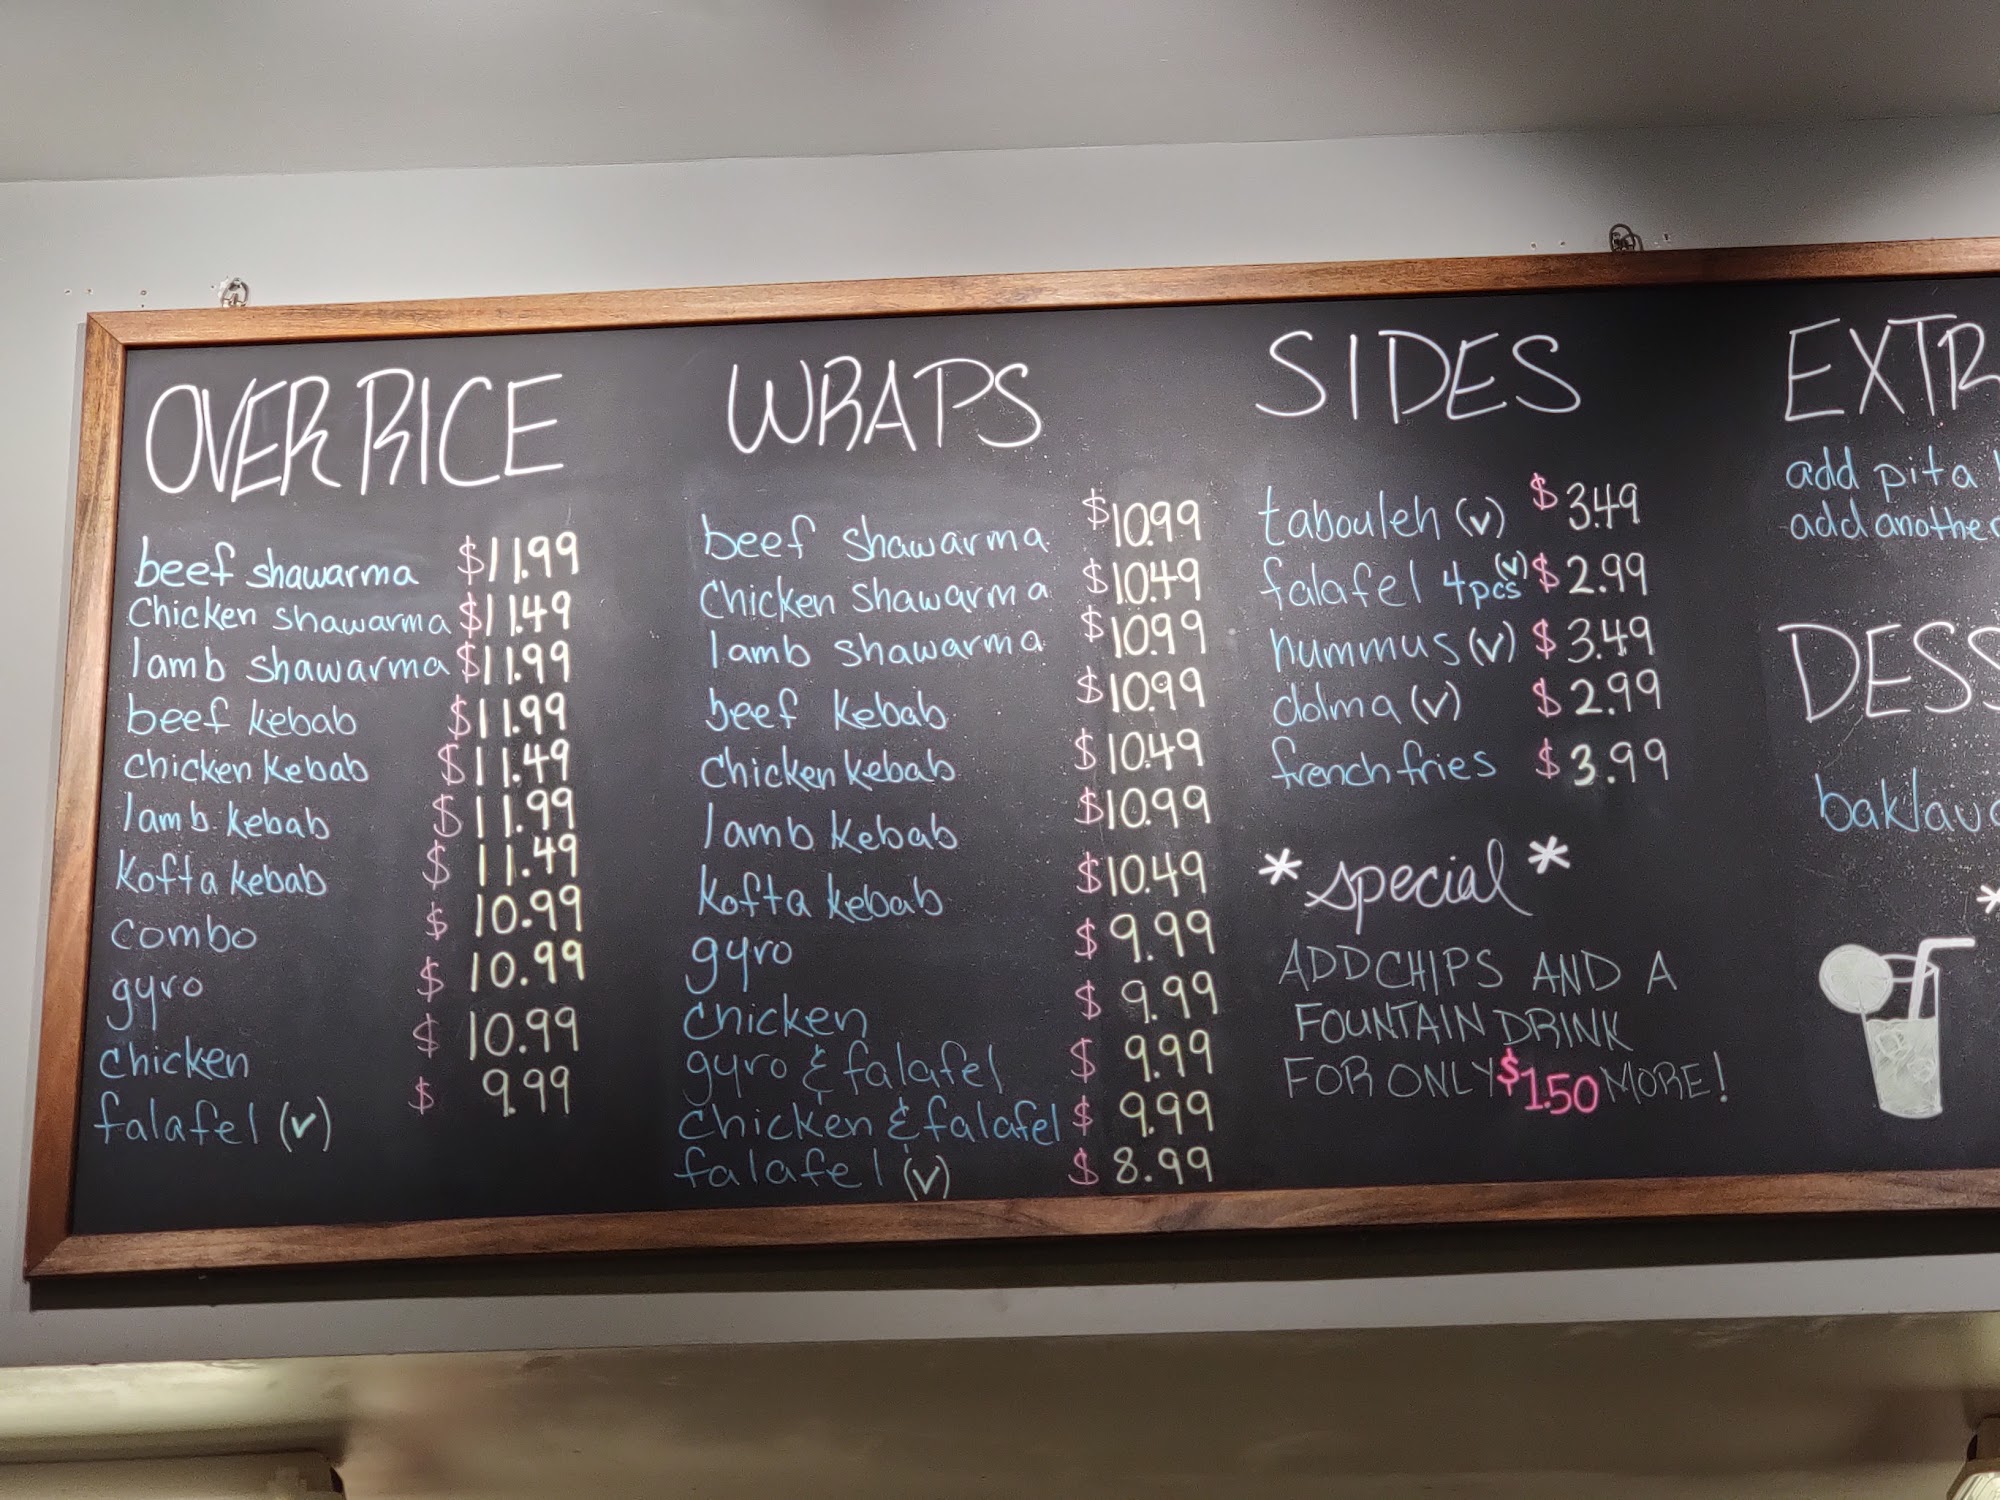 OVER RICE
beef shawarma $11.99
chicken shawarma $11.49
lamb shawarma $11.99
beef kebab $11.99
chicken kebab $11.49
lamb kebab $11.99
kofta kebab $11.49
combo $10.99
gyro $10.99
chicken $10.99
falafel (v) $9.99
WRAPS
beef shawarma $10.99
chicken shawarma $10.49
lamb shawarma $10.99
beef kebab $10.99
chicken kebab $10.49
lamb kebab $10.99
kofta kebab $10.49
gyro $9.99
chicken $9.99
gyro & falafel $9.99
chicken & falafel $9.99
falafel (v) $8.99
SIDES
tabouleh (v) $3.49
falafel 4pcs (v) $2.99
hummus (v) $3.49
dolma (v) $2.99
french fries $3.99
*special*
ADD CHIPS AND A
FOUNTAIN DRINK
FOR ONLY $1.50 MORE!
EXTR
add pita
add anothe
DESS
baklava
*